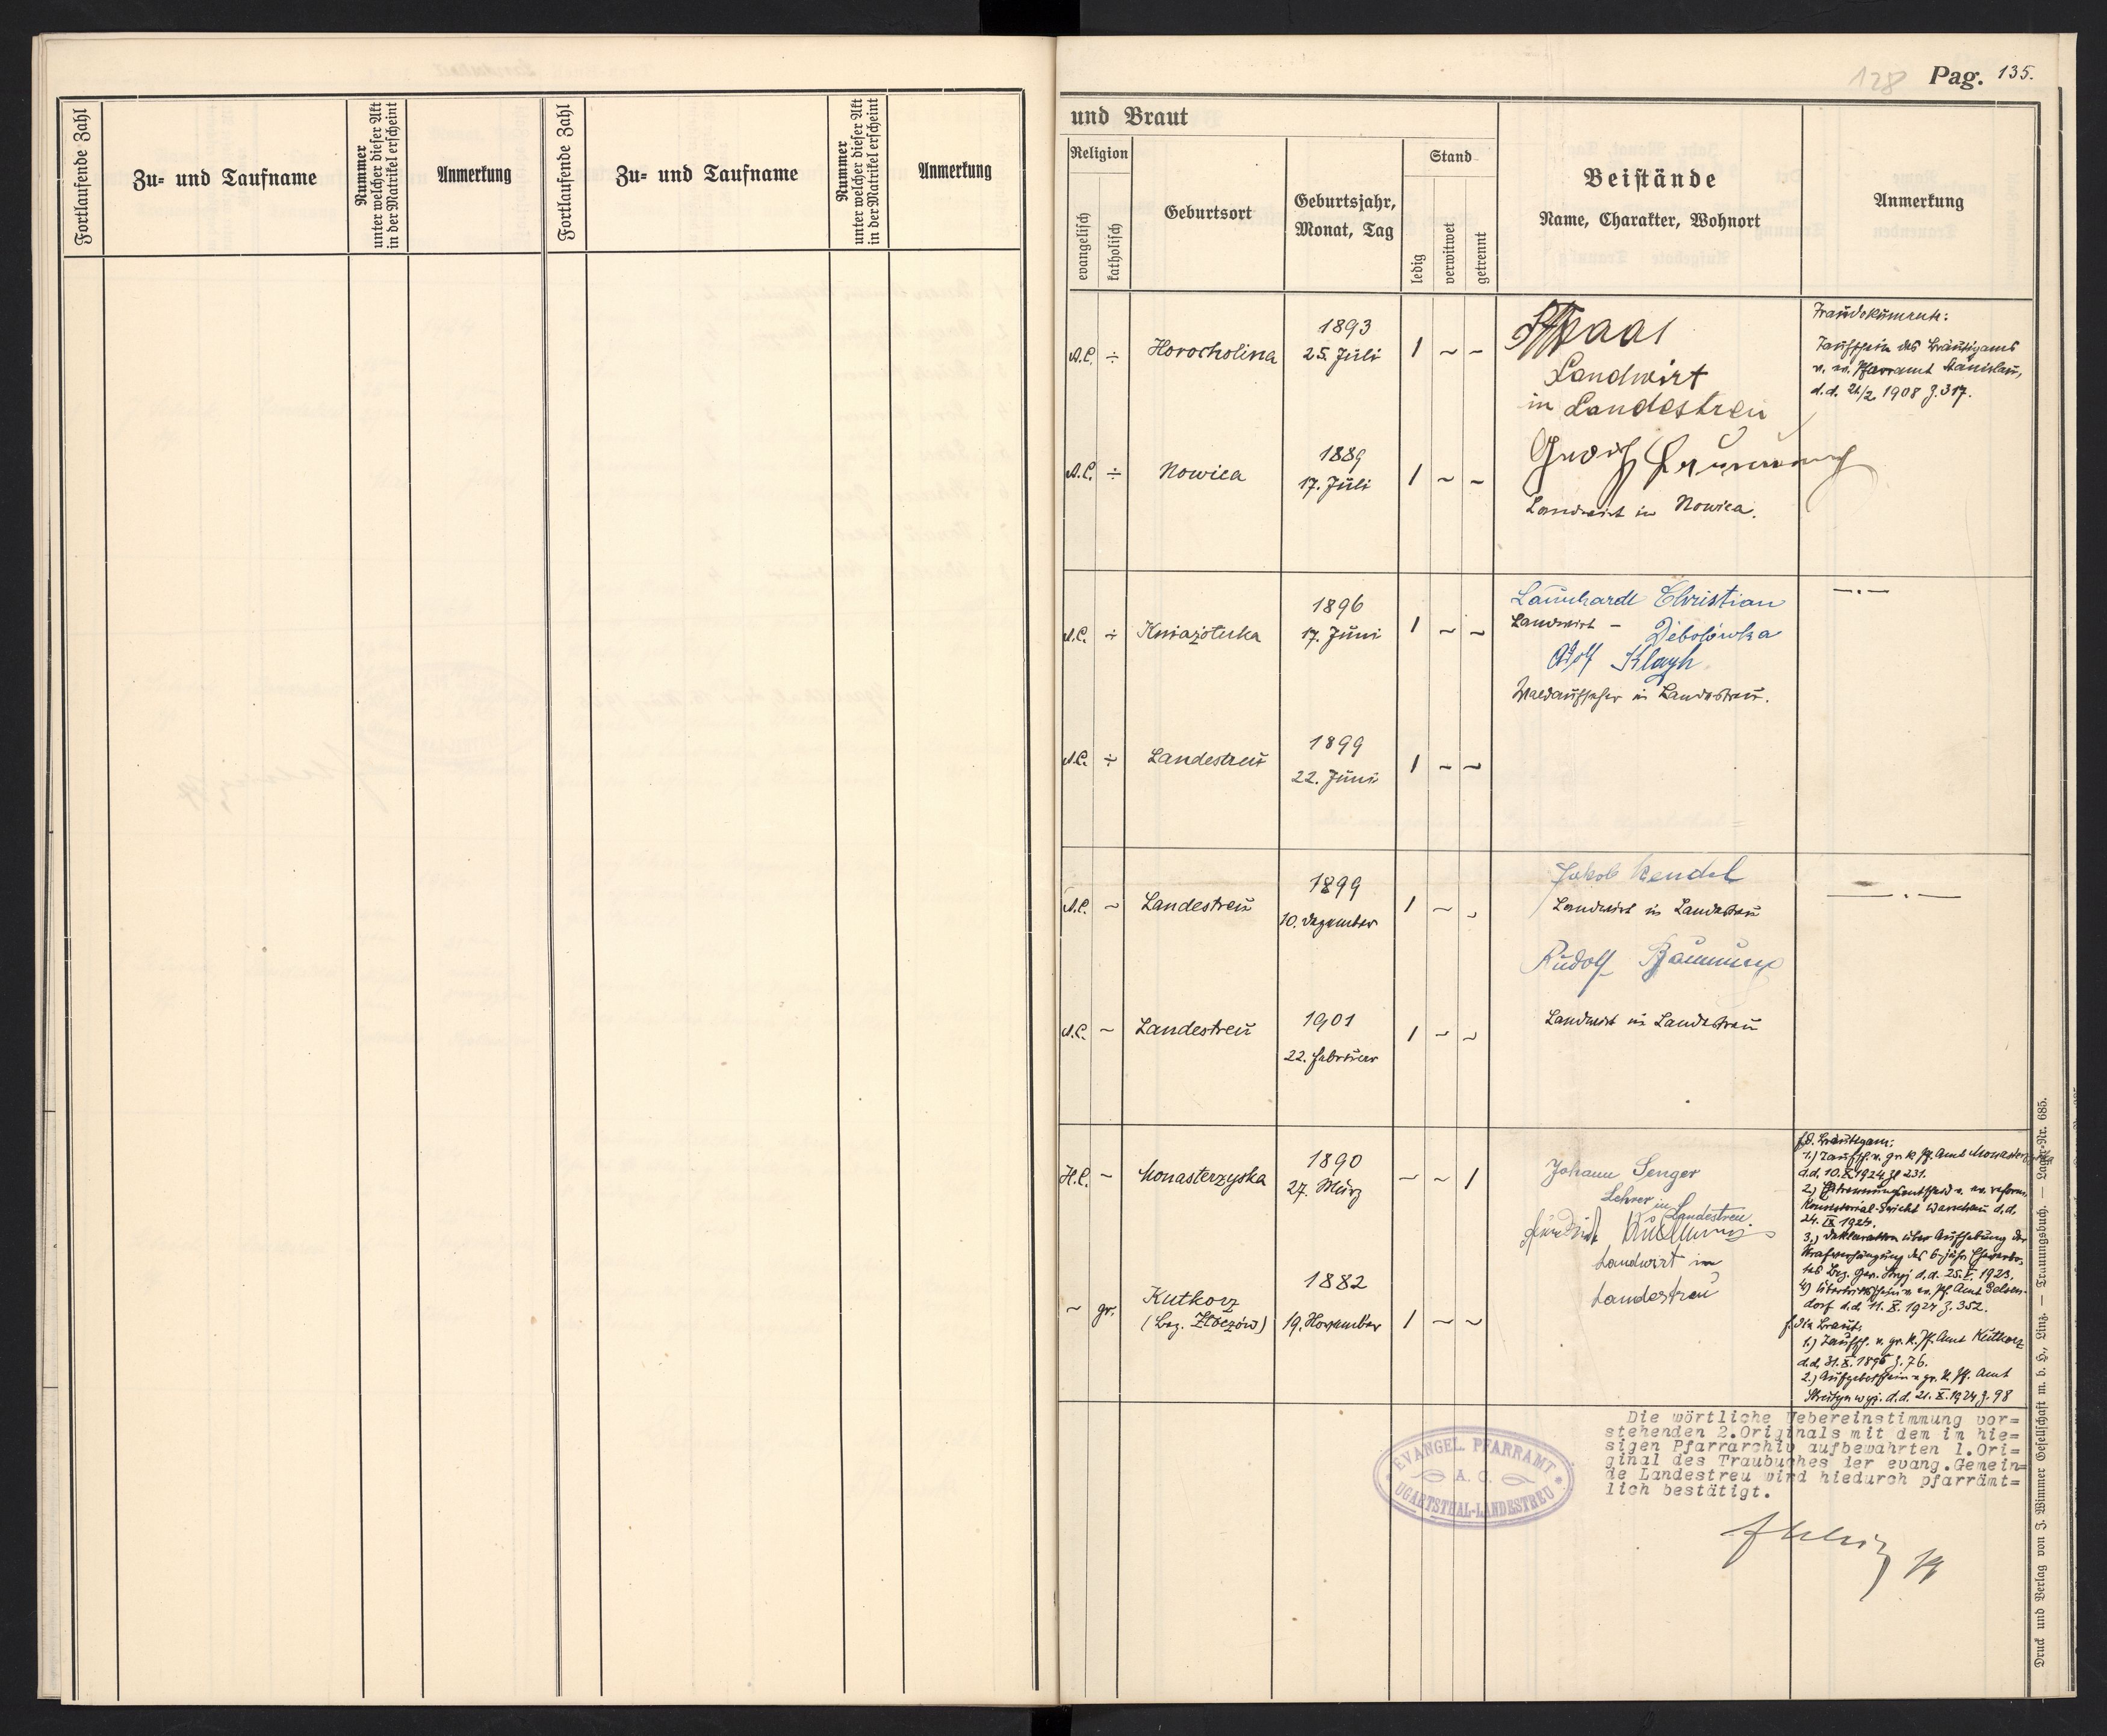 Fortlaufende Zahl
Zu- und Taufname
Nummer
unter welcher dieser Akt
in der Matrikel erscheint
Anmerkung
Fortlaufende Zahl
Zu- und Taufname
Nummer
unter welcher dieser Akt
in der Matrikel erscheint
Anmerkung
128 Pag. 135.
und Braut
Religion
evangelisch
katholisch
Geburtsort
Geburtsjahr,
Monat, Tag
Stand
ledig
verwitwet
getrennt
Beistände
Name, Charakter, Wohnort
Anmerkung
A.C. ÷ Horocholina
1893
25. Juli
1 ~ ~
Landwirt
in Landestreu
Traudokumente:
Taufschein des Bräutigams
v. ev. Pfarramt Stanislau,
d.d. 21/2 1908 Z. 317.
A.C. ÷ Nowica
1889
17. Juli
1 ~ ~
Landwirt in Nowica.
A.C. ÷ Kniaźoluka
1896
17. Juni
1 ~ ~
Launhardt Christian
Landwirt – Debolówka
Adolf
Waldaufseher in Landestreu.
—.—
A.C. ÷ Landestreu
1899
22. Juni
1 ~ ~
A.C. ~ Landestreu
1899
10. Dezember
1 ~ ~
Jakob Kendel
Landwirt in Landestreu
Rudolf
Landwirt in Landestreu
—.—
A.C. ~ Landestreu
1901
22. Februar
1 ~ ~
H.C. ~ Monasterzyska
1890
27. März
~ ~ 1
Johann Senger
Lehrer in Landestreu
Landwirt in
Landestreu
f. d. Bräutigam:
1.) Taufsch. v. gr. k. Pf. Amt
d.d. 10.X.1924 Zl 231.
2.) v. ev. reform.
Konsistorial-Gericht Warschau d.d.
24. IX 1924.
3.) Deklaration über Aufhebung der
des 6-jähr.
Bez. Ger. Stryj d.d. 25.V. 1923.
4) v. ev. Pf. Amt Gelsen-
dorf d.d. 11. X. 1924 Z. 352.
~ gr. Kutkorz
(Bez. Złoczów)
1882
19. November
1 ~ ~
f. die Braut:
1.) Taufsch. v. gr. k. Pf. Amt Kutkorz
d.d. 31.X.1896 Z. 76.
2.) Aufgebotschein v. gr. k. Pf. Amt
d.d. 21. X. 1924 Z. 98
Die wörtliche Uebereinstimmung vor=
stehenden 2.Originals mit dem im hie=
sigen Pfarrarchiv aufbewahrten 1.Ori=
ginal des Traubuches der evang.Gemein=
de Landestreu wird hiedurch pfarrämt=
lich bestätigt.
EVANGEL. PFARRAMT
A. C.
UGARTSTHAL-LANDESTREU
Druck und Verlag von J. Wimmer Gesellschaft m. b. H., Linz. — Trauungsbuch. — Lager-Nr. 685.